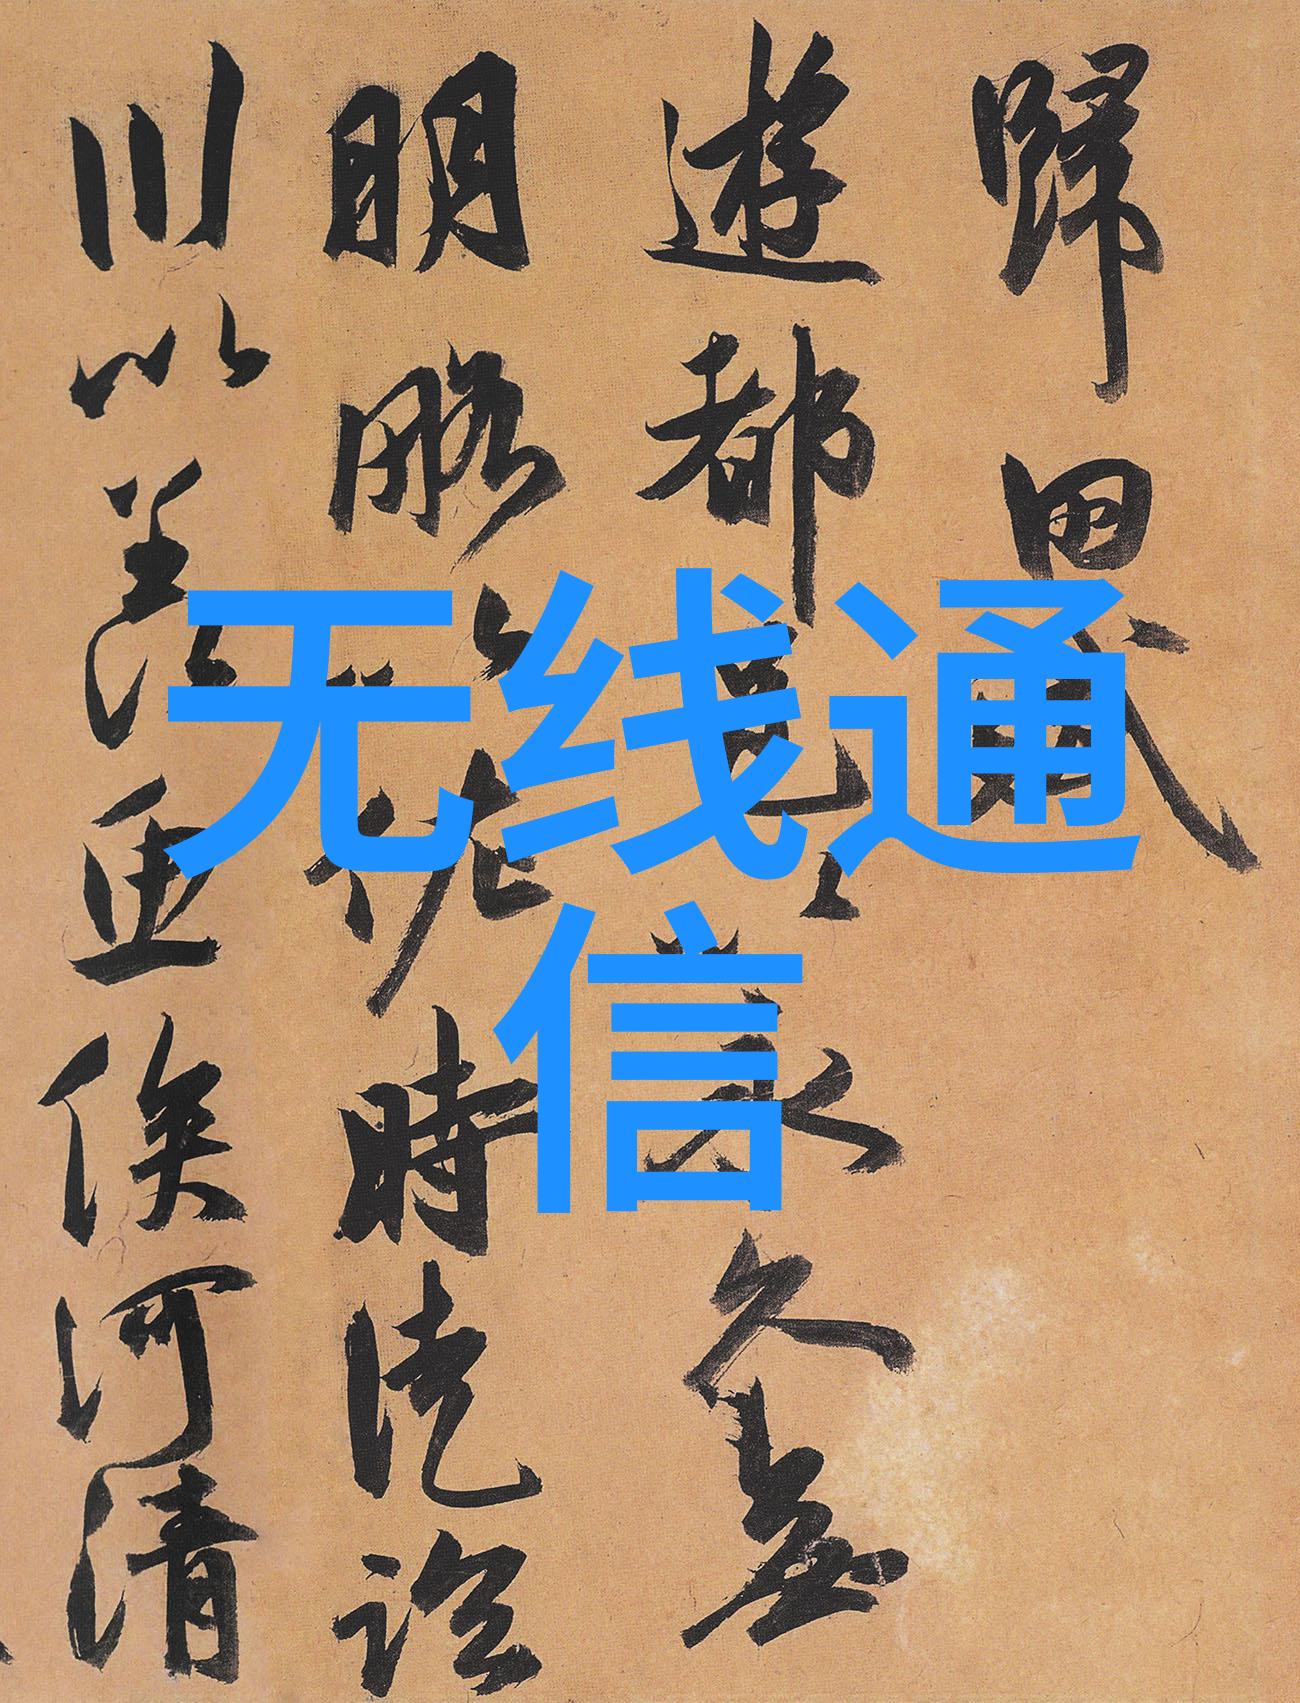 歸田賦
遊都邑以永久無
明略以佐時徒臨
川以羡魚俟河清
无线通
信